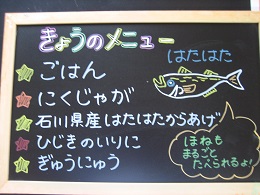 きょうのメニュー
ごはん
にくじゃが
石川県産はたはたからあげ
ひじきのいりに
ぎゅうにゅう
はたはた
ほねも
まるごと
たべられるよ!